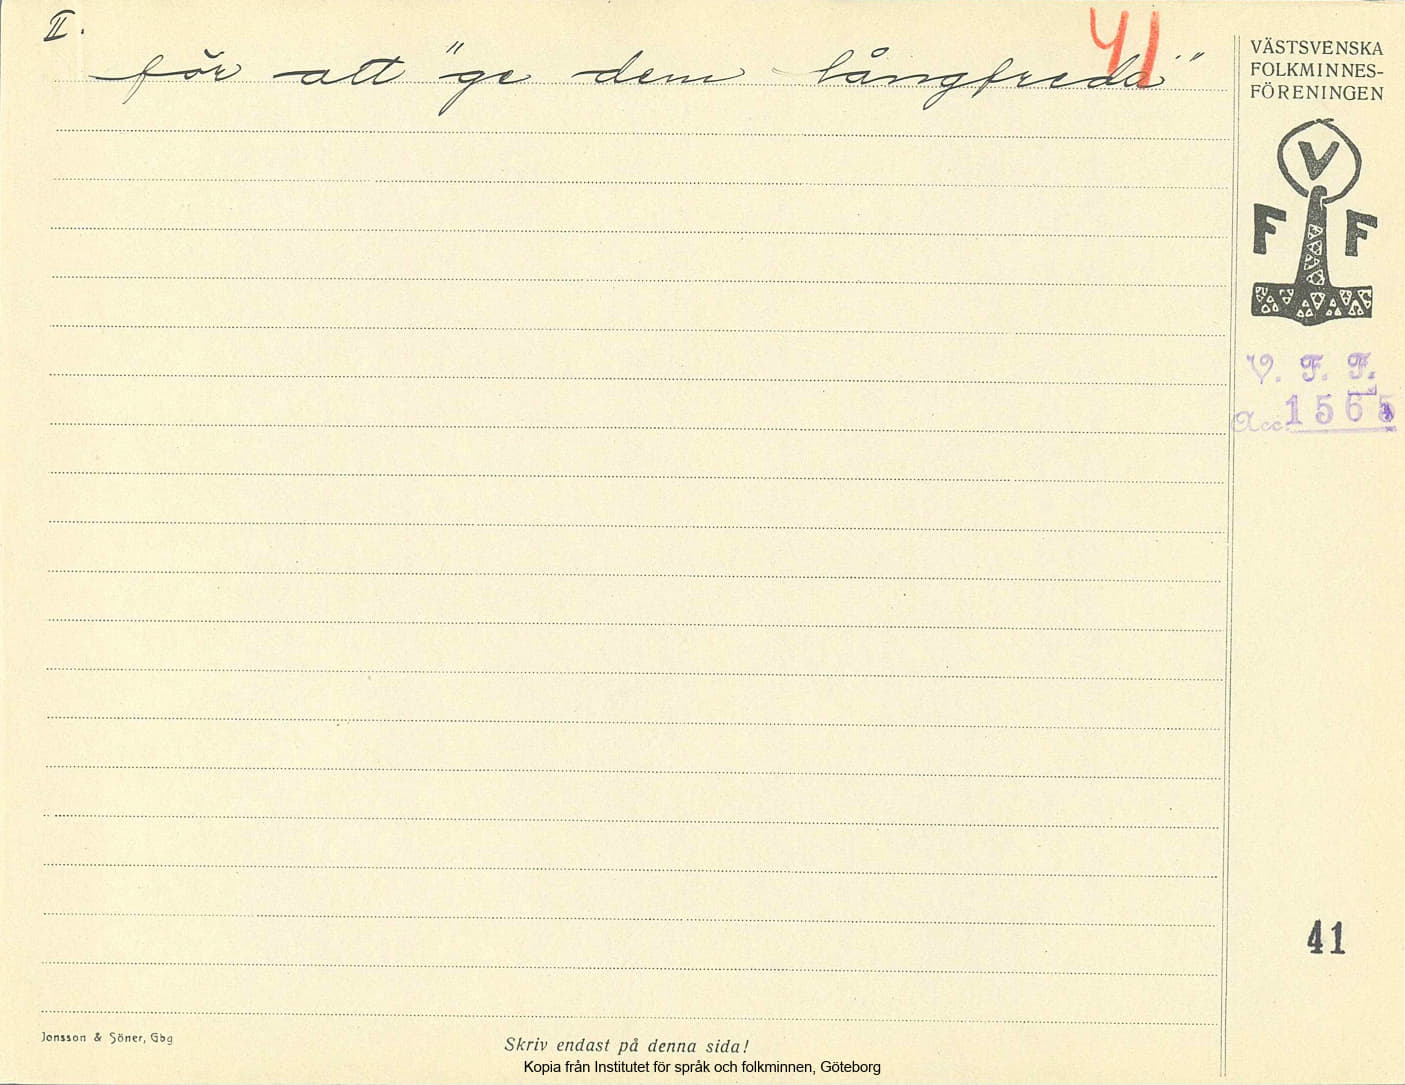 II.
41
för att "ge dem långfreda"
VÄSTSVENSKA
FOLKMINNES-
FÖRENINGEN
V
F F
V. F. F.
Acc. 1565
41
Jonsson & Söner, Gbg
Skriv endast på denna sida!
Kopia från Institutet för språk och folkminnen, Göteborg